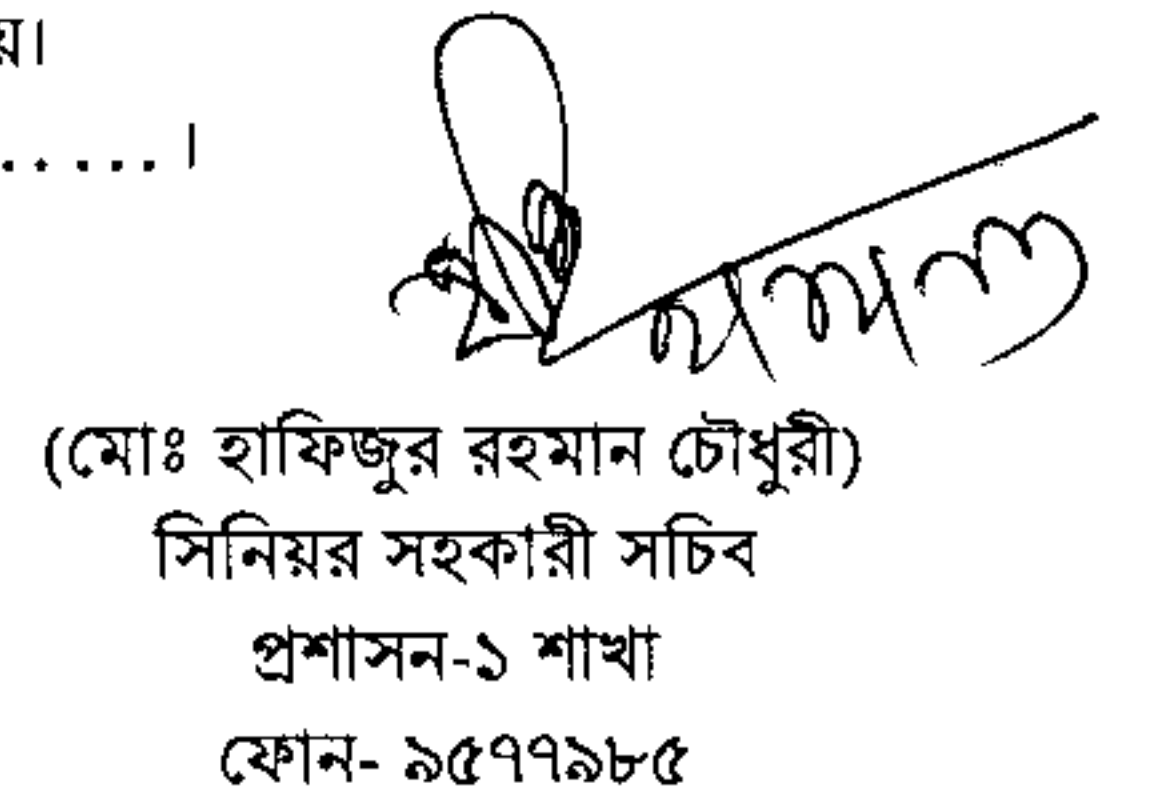 য়।
. . . . . ।
(মোঃ হাফিজুর রহমান চৌধুরী)
সিনিয়র সহকারী সচিব
প্রশাসন-১ শাখা
ফোন- ৯৫৭৭৯৮৫